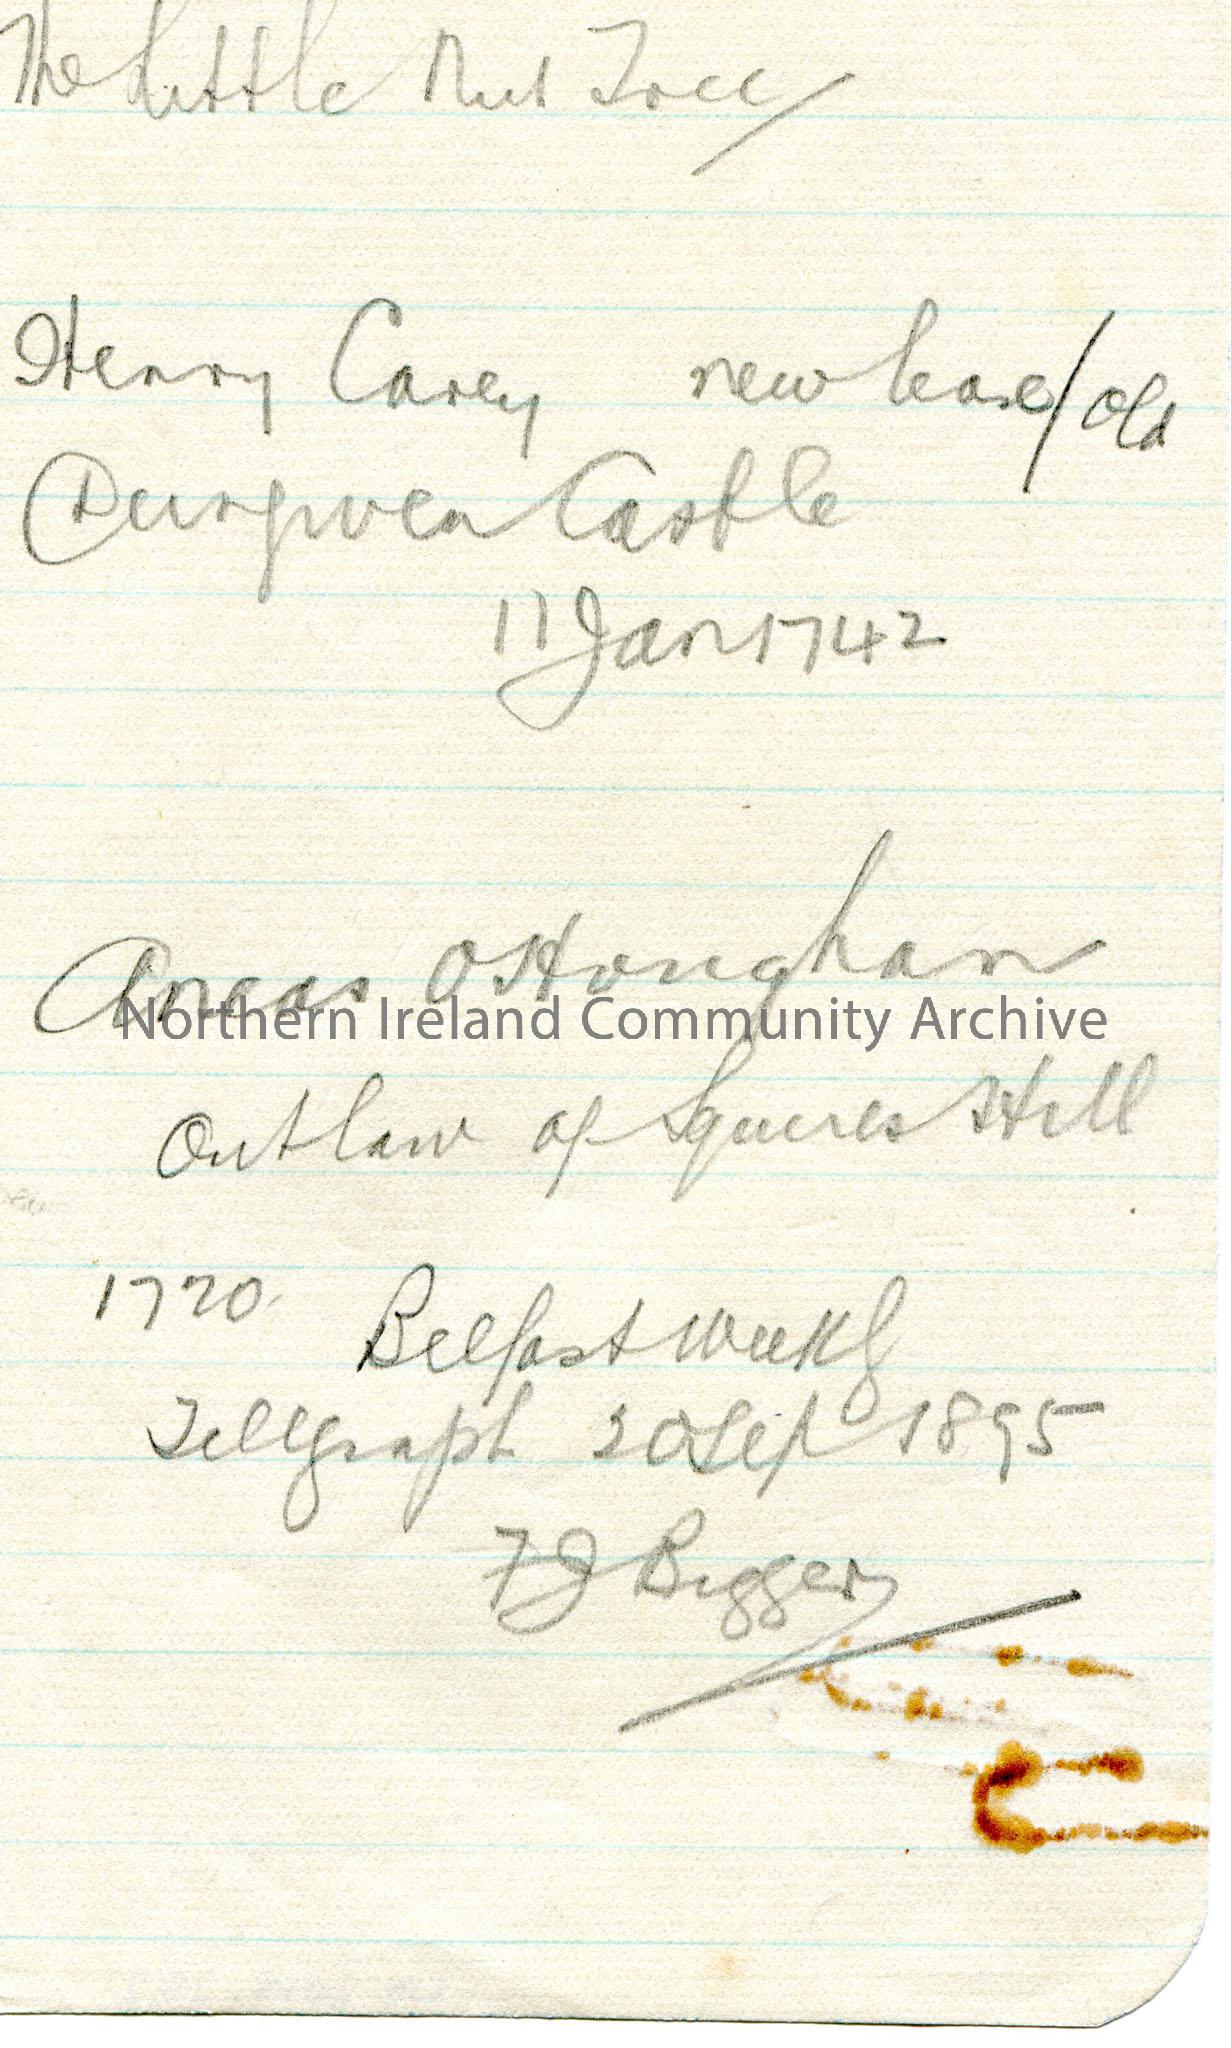 The Little Nut Tree
Henry Carey new lease/old
Dungiven Castle
11 Jan 1742
Aneas O Honghan
Northern Ireland Community Archive
Outlaw of Squires Hill
1720. Belfast Weekly
Tellgraph 20 Sep 1895
F J Bigger